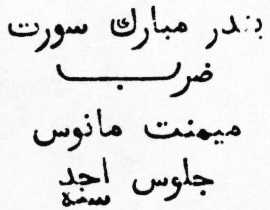 بندر مبارك سورت
ضرب
ميمنت مانوس
جلوس احد
سنة